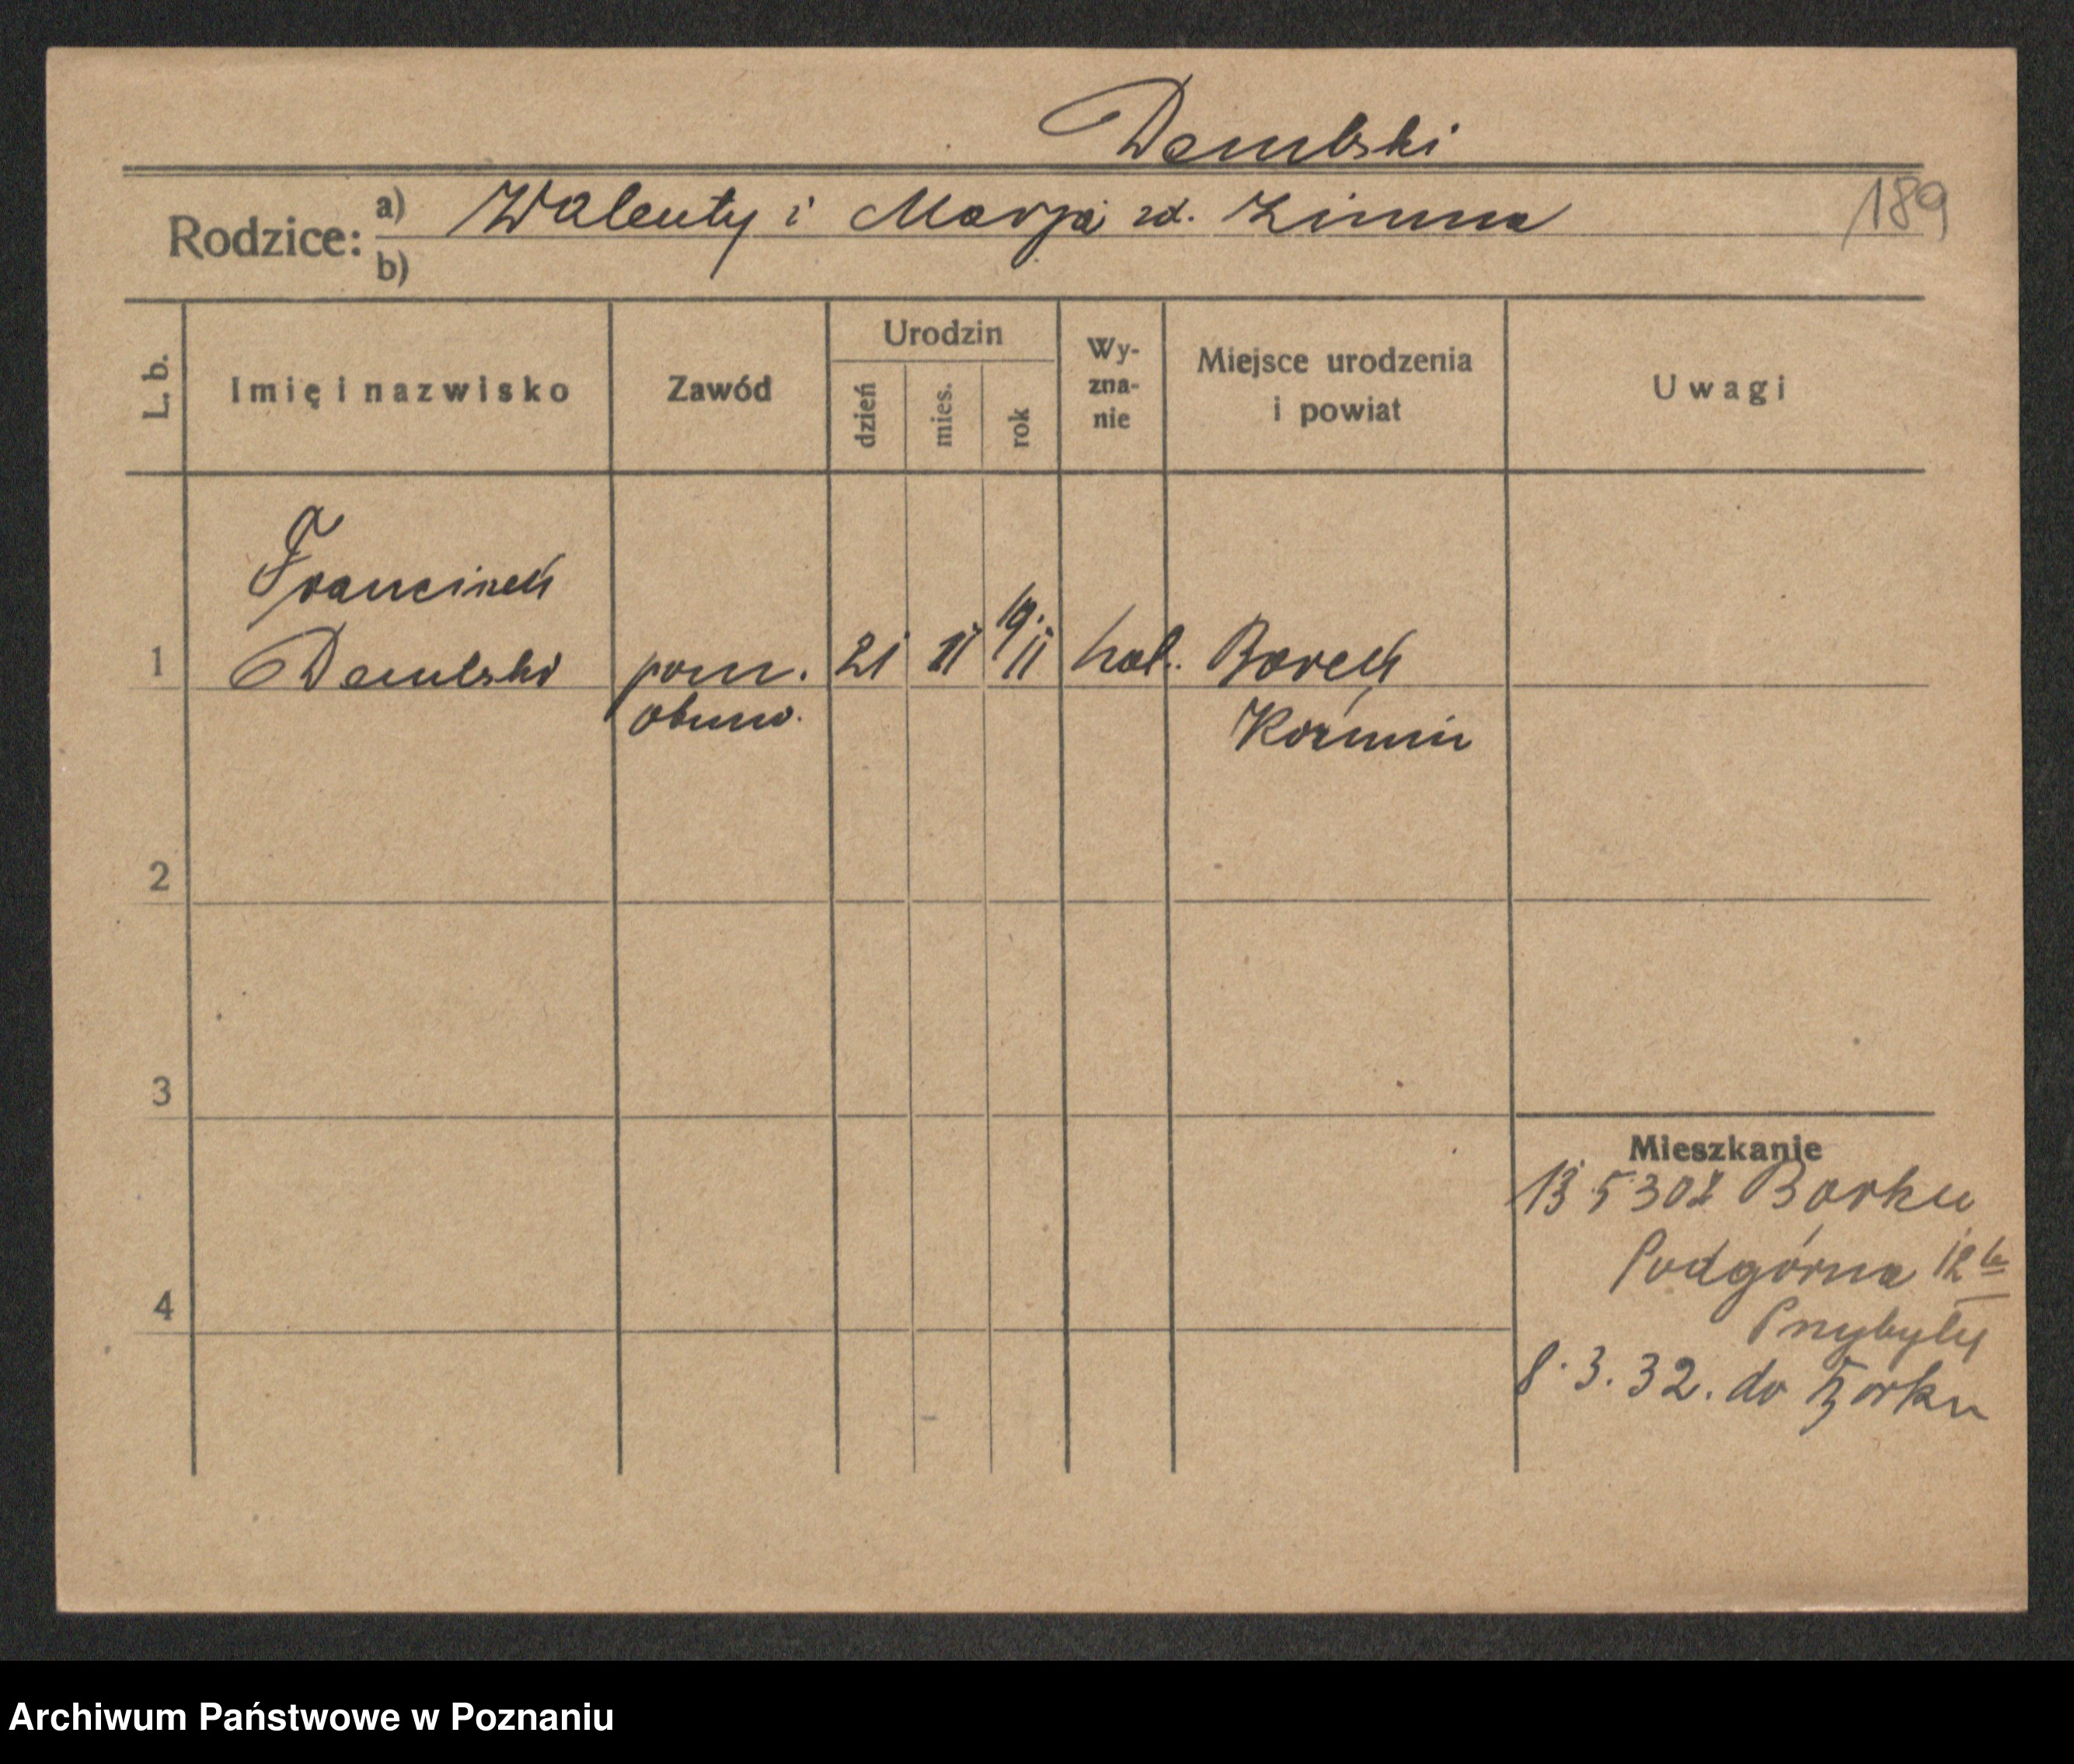 Dembski
Rodzice: a) Walenty i Marja zd. Zimna
b)
189
L. b. Imię i nazwisko Zawód Urodzin dzień mies. rok Wy-zna-nie Miejsce urodzenia i powiat Uwagi
Franciszek
1 Dembski pom. 21 11 19/11 kat. Borek
obuw. Koźmin
2
3
Mieszkanie
13 5 30 z Borku
Podgórna 12
4
Przybyły
8.3.32. do Borku
Archiwum Państwowe w Poznaniu